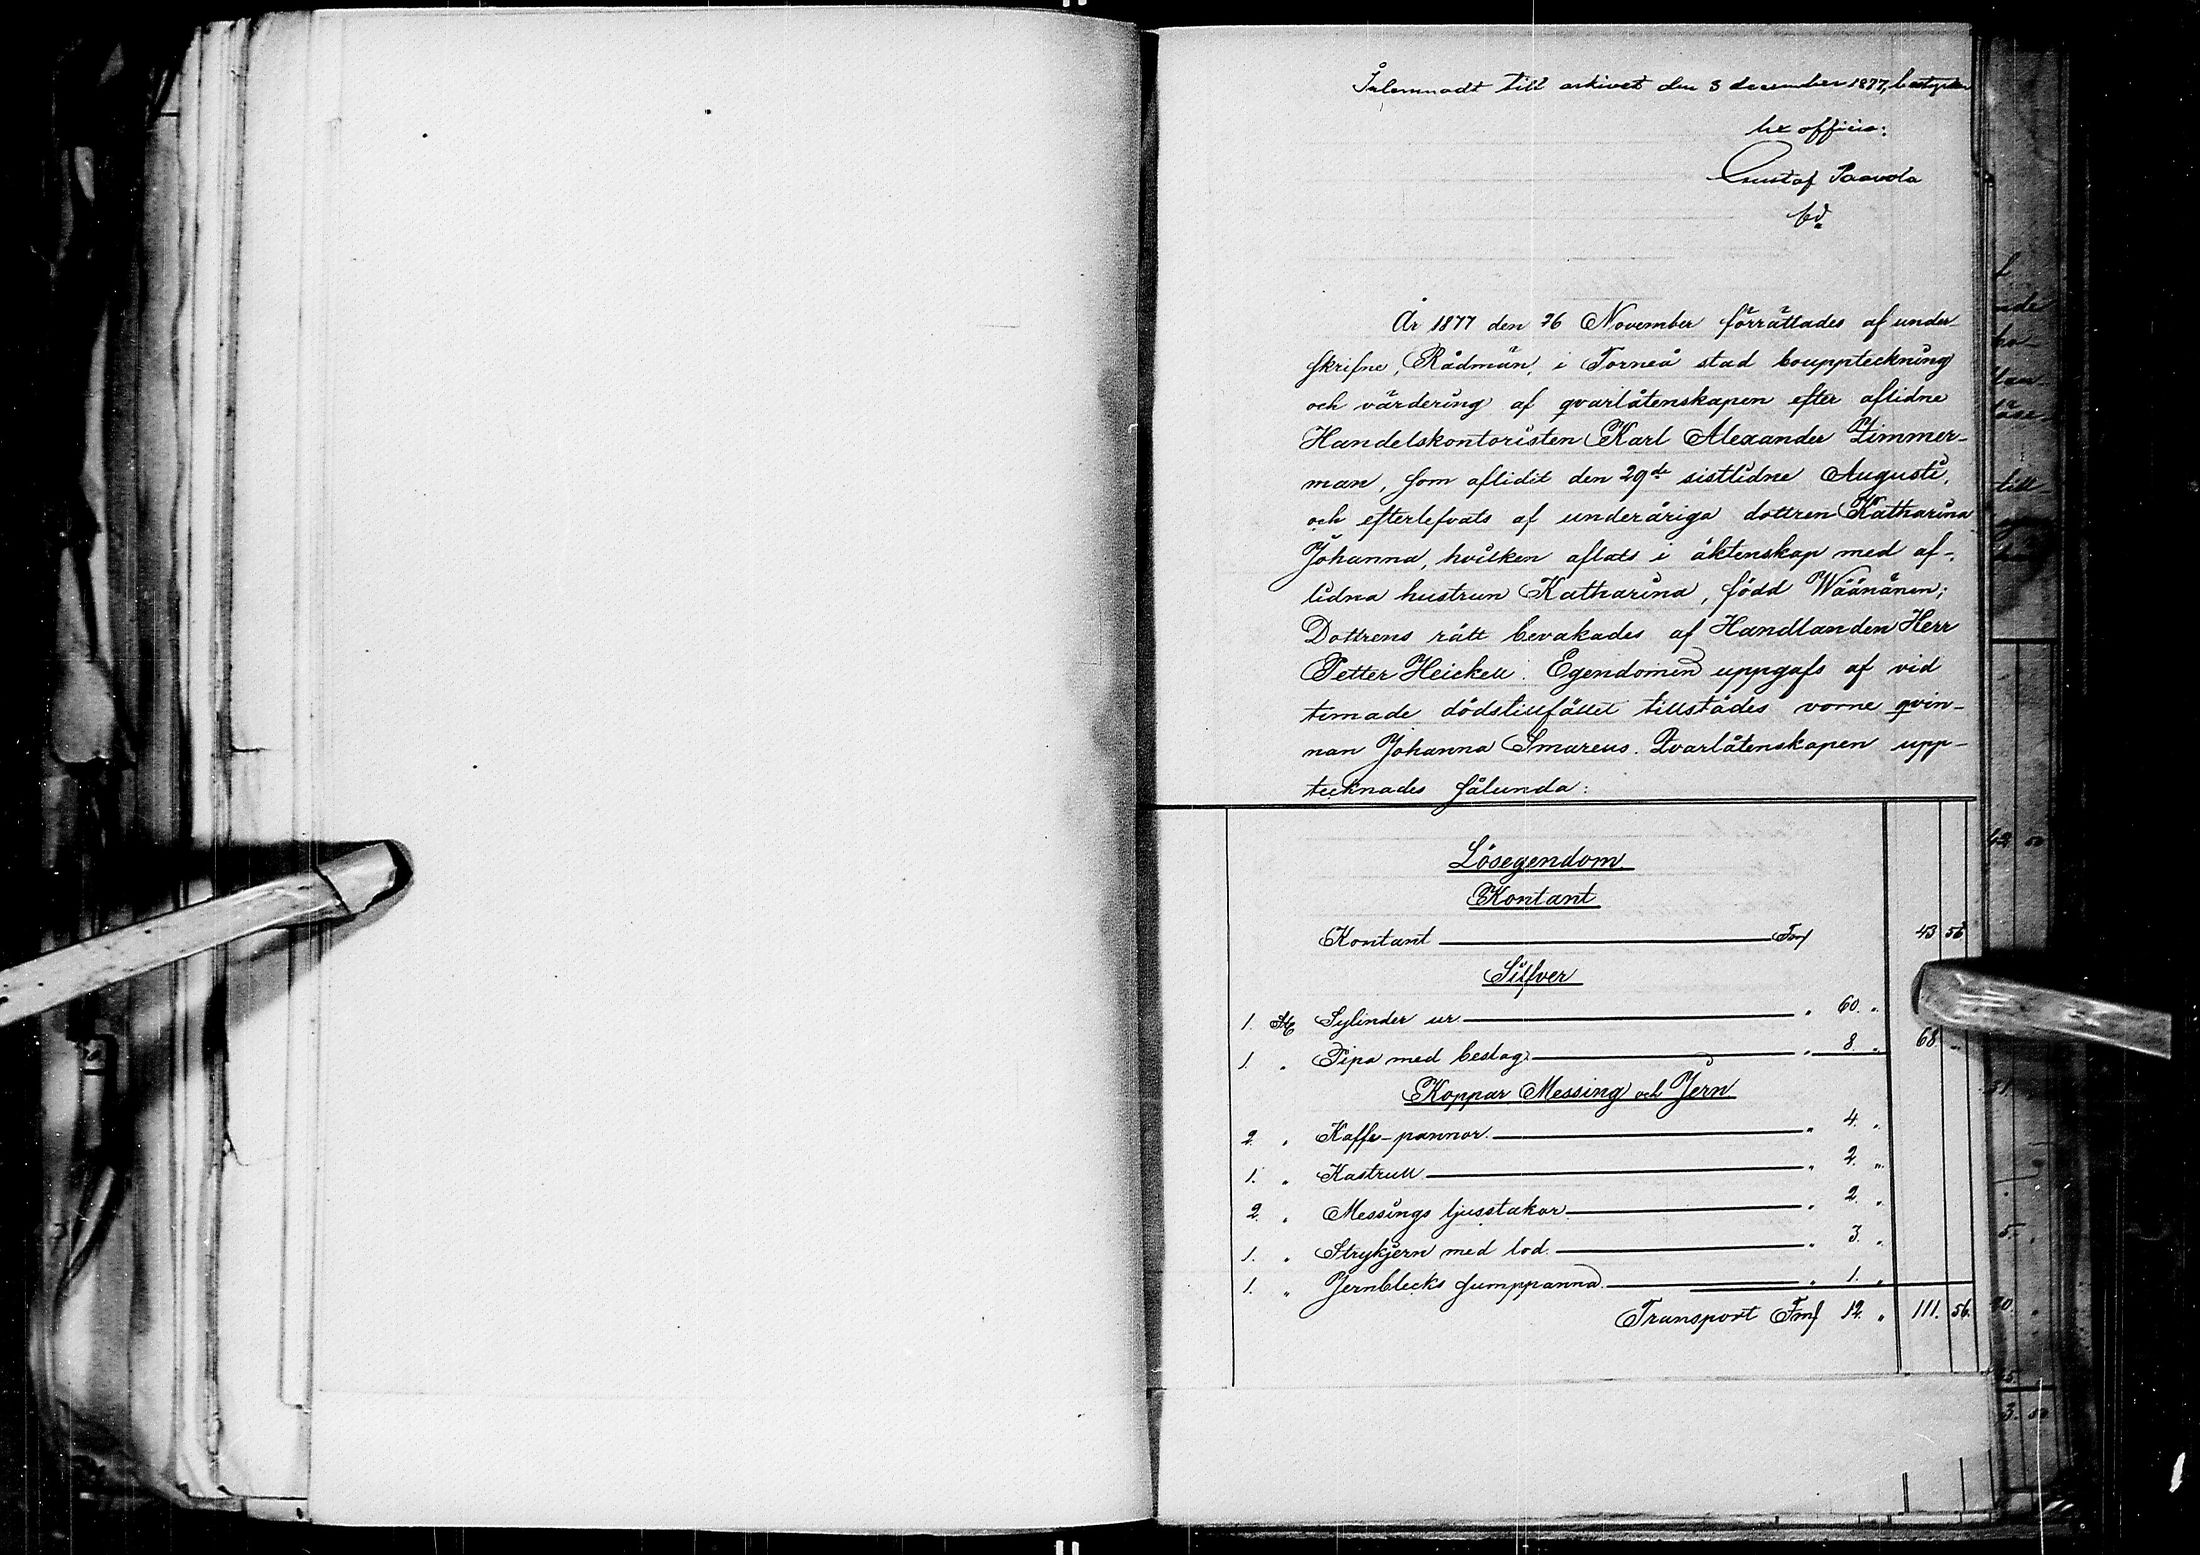 Inlemnadt till arkivet den 3 december 1877, bestyrker
Ex officio:
Gustaf Paavola
År 1877 den 26 November förrättades af under-
skrifne, Rådmän, i Torneå stad bouppteckning
och värdering af qvarlåtenskapen efter aflidne
Handelskontoristen Karl Alexander Zimmer-
man, som aflidit den 29de sistlidne Augusti,
och efterlefvats af underåriga dottren Katharina
Johanna, hvilken aflats i äktenskap med af-
lidna hustrun Katharina, född Wäänänen;
Dottrens rätt bevakades af Handlanden Herr
Petter Heickell. Egendomen uppgafs af vid
timade dödstillfället tillstädes varne qvin-
nan Johanna Smareus. Qvarlåtenskapen upp-
tecknades sålunda:
Lösegendom
Kontant
Kontant Fmf 43 56
Silfver
1. St. Sylinder ur " 60. "
1. " Pipa med beslag " 8. " 68. "
Koppar, Messing och Jern
2. " Kaffe-pannor " 4. "
1. " Kastrull " 2. "
2. " Messings ljusstakar " 2. "
1. " Strykjern med lod. " 3. "
1. " Jernblecks sumppanna " 1. "
Transport Fmf 12. " 111. 56.